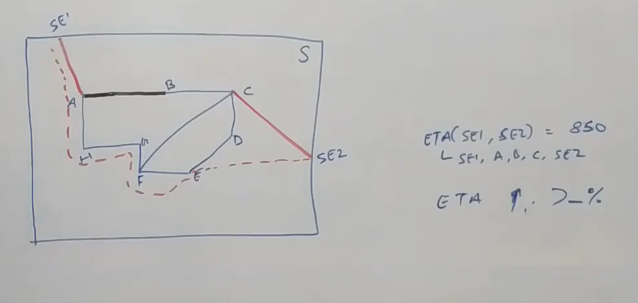 SE1
S
A
B
C
D
SE2
E
F
ETA(SE1, SE2) = 850
SE1, A, B, C, SE2
ETA ↑